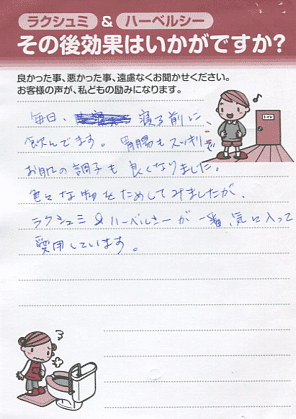 ラクシュミ & ハーベルシー
その後効果はいかがですか?
良かった事、悪かった事、遠慮なくお聞かせください。
お客様の声が、私どもの励みになります。
毎日、寝る前に
飲んでます。胃腸もスッキリ
お肌の調子も良くなりました。
色々な物をためしてみましたが、
ラクシュミ&ハーベルシーが一番、気に入って
愛用しています。